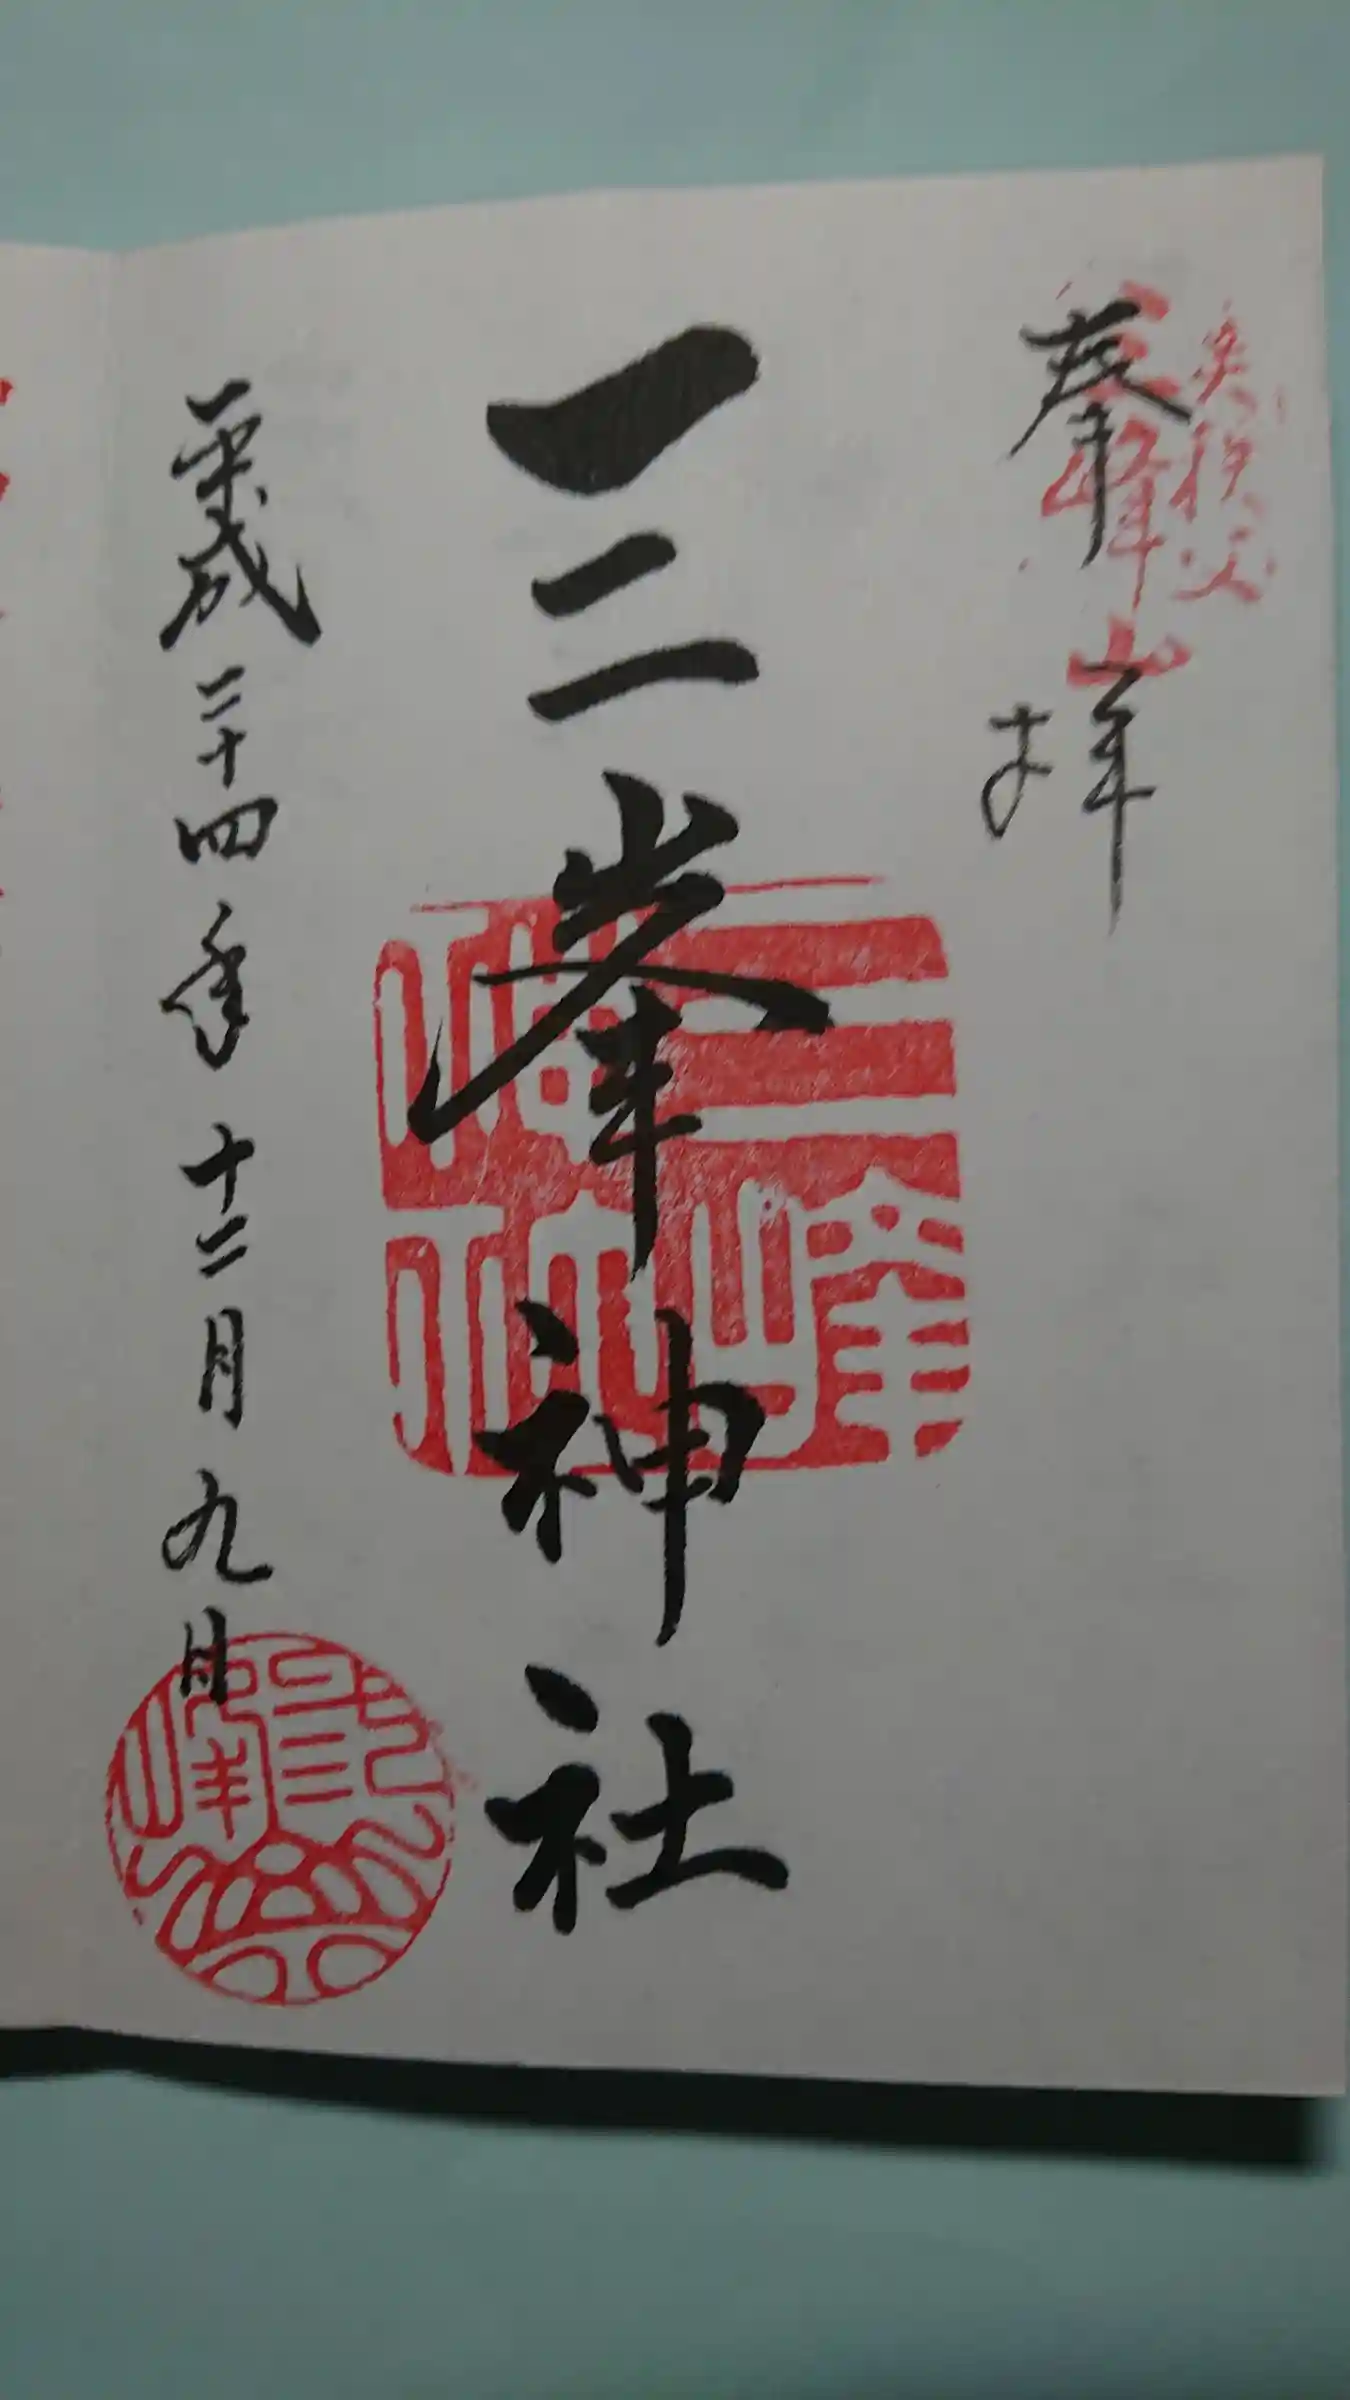 奥秩父
三峰山
奉拝
三峯神社
三峰神社
平成二十四年十二月九日